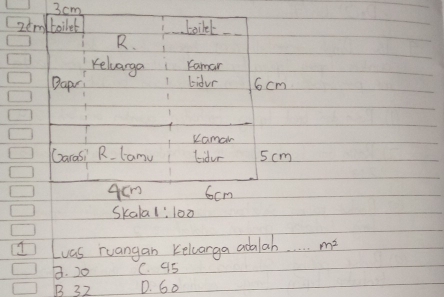 3cm
2cm toilet toilet
R.
Keluarga Kamar
Dapur tidur 6cm
Kamar
Garasi R-tamu tidur 5cm
4cm 6cm
Skala 1:100
1 Luas ruangan Keluarga adalah ..... m²
a. 20 C. 45
B 32 D. 60